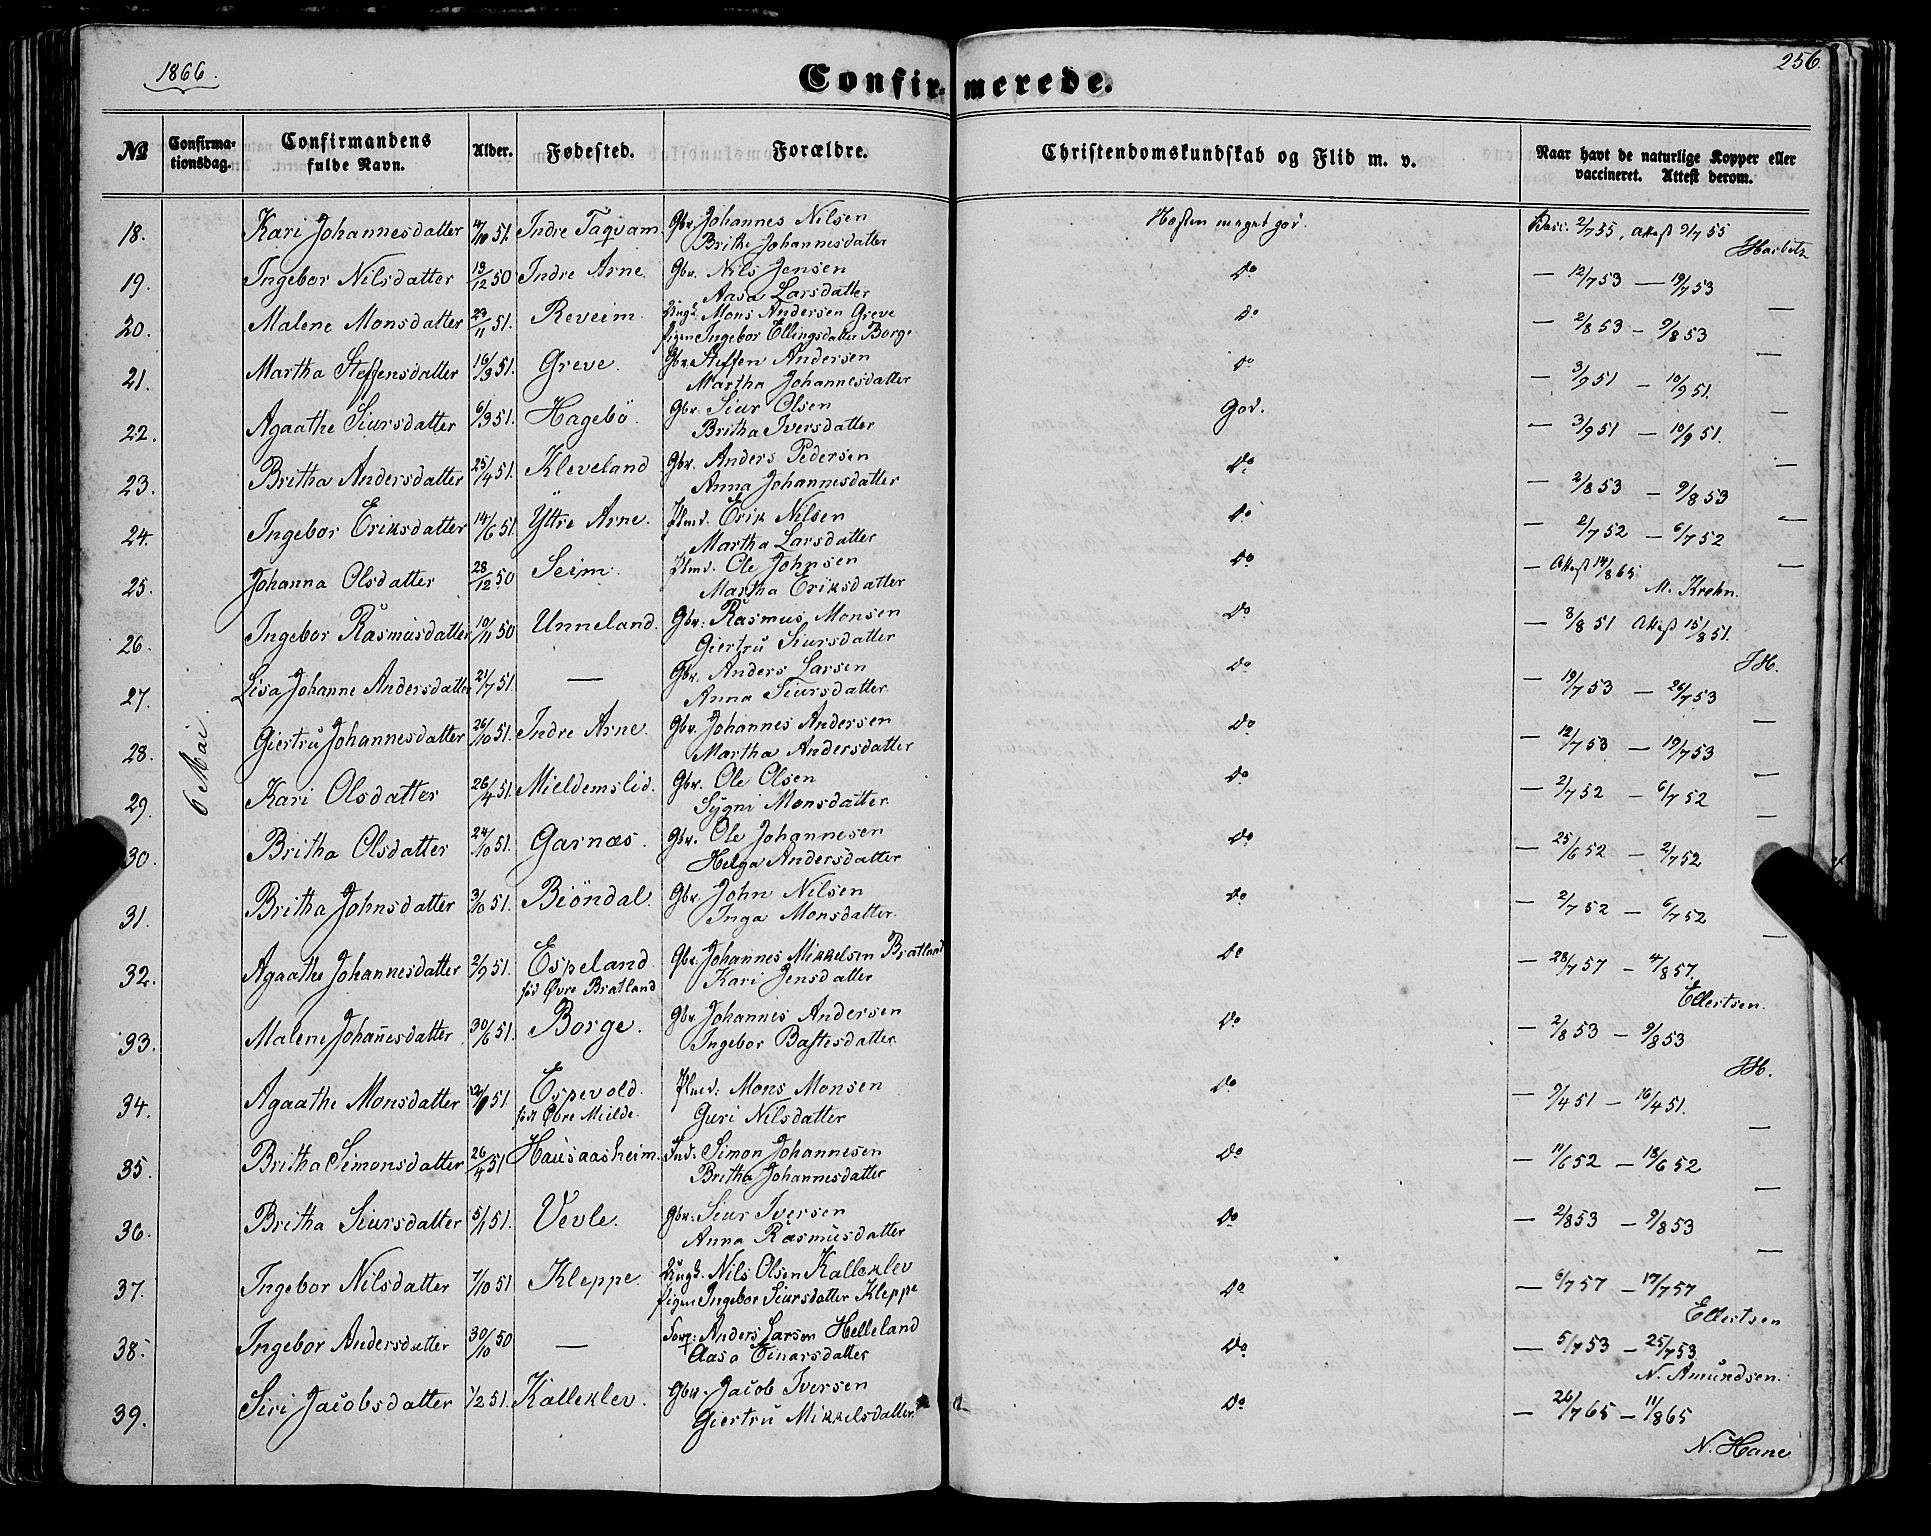 1866.
256
Confirmerede.
№ Confirmationsdag. Confirmandens fulde Navn. Alder. Fødested. Forældre. Christendomskundskab og Flid m. v. Naar havt de naturlige Kopper eller vaccineret. Attest derom.
6 Mai.
18. Kari Johannesdatter 51. Indre Taqvam. Gbr. Johannes Nilsen Næsten meget god. Vacc. 2/7 55, Attest 9/7 55
Brithe Johannesdatter
19. Ingebor Nilsdatter 13/12 50 Indre Arne. Gbr. Nils Jensen Do — 12/7 53 — 19/7 53
Aasa Larsdatter
20. Malene Monsdatter 23/11 51. Reveim Ungk. Mons Andersen Greve Do — 2/8 53 — 9/8 53 —
Pigen Ingebor Ellingsdatter Borge
21. Martha Steffensdatter 16/3 51. Greve. Gbr. Steffen Andersen Do — 3/9 51 — 10/9 51. —
Martha Johannesdatter
22. Agaathe Siursdatter 6/3 51. Hagebö. Gbr. Siur Olsen God. — 3/9 51 — 10/9 51. —
Britha Iversdatter
23. Britha Andersdatter 25/4 51. Kleveland Gbr. Anders Pedersen Do — 2/8 53 — 9/8 53 —
Anna Johannesdatter
24. Ingebor Eriksdatter 14/6 51. Yttre Arne. Plmd. Erik Nilsen Do — 2/7 52 — 6/7 52 —
Martha Larsdatter
25. Johanna Olsdatter 28/12 50 Seim. Plmd. Ole Johnsen Do — Attest 14/8 65. —
Martha Eriksdatter M. Krohn.
26. Ingebor Rasmusdatter 10/11 50 Unneland. Gbr. Rasmus Monsen Do — 8/8 51 Attest 15/8 51.
Giertru Siursdatter
27. Lisa Johanne Andersdatter 21/7 51. — Gbr. Anders Larsen Do — 19/7 53 — 26/7 53 JH.
Anna Siursdatter
28. Giertru Johannesdatter 26/10 51. Indre Arne. Gbr. Johannes Andersen Do — 12/7 53 — 19/7 53 —
Martha Andersdatter
29. Kari Olsdatter 26/4 51. Mieldemslid. Gbr. Ole Olsen Do — 2/7 52 — 6/7 52 —
Sygni Monsdatter
30. Britha Olsdatter 24/10 51. Garnæs. Gbr. Ole Johannesen Do — 25/6 52 — 2/7 52 —
Helga Andersdatter
31. Britha Johnsdatter 3/10 51. Biöndal. Gbr. John Nilsen Do — 2/7 52 — 6/7 52
Inga Monsdatter
32. Agaathe Johannesdatter 2/9 51. Espeland Gbr. Johannes Mikkelsen Bratland Do — 28/7 57 — 4/8 57. —
fød Øvre Bratland Kari Jensdatter Ellertsen.
33. Malene Johannesdatter 30/6 51. Borge. Gbr. Johannes Andersen Do — 2/8 53 — 9/8 53
Ingebor Bastesdatter
34. Agaathe Monsdatter 51 Espevold. Plmd. Mons Monsen Do — 9/4 51 — 16/4 51. JH.
født Øvre Mielde. Guri Nilsdatter
35. Britha Simonsdatter 26/4 51 Hausaasheim. Ind. Simon Johannesen Do — 11/6 52 — 18/6 52 —
Britha Johannesdatter
36. Britha Siursdatter 5/1 51. Vevle. Gbr. Siur Iversen Do — 2/8 53 — 9/8 53 —
Anna Rasmusdatter
37. Ingebor Nilsdatter 7/10 51 Kleppe. Ungk. Nils Olsen Kalleklev Do — 6/7 57 — 17/7 57 —
Pigen Ingebor Siursdatter Kleppe Ellertsen
38. Ingebor Andersdatter 30/10 50 — Forp: Anders Larsen Helleland Do — 5/7 53 — 25/7 53
Aasa Einarsdatter N. Amundsen.
39. Siri Jacobsdatter 1/2 51. Kalleklev. Gbr. Jacob Iversen Do — 26/7 65 — 11/8 65
Giertru Mikkelsdatter N. Hane